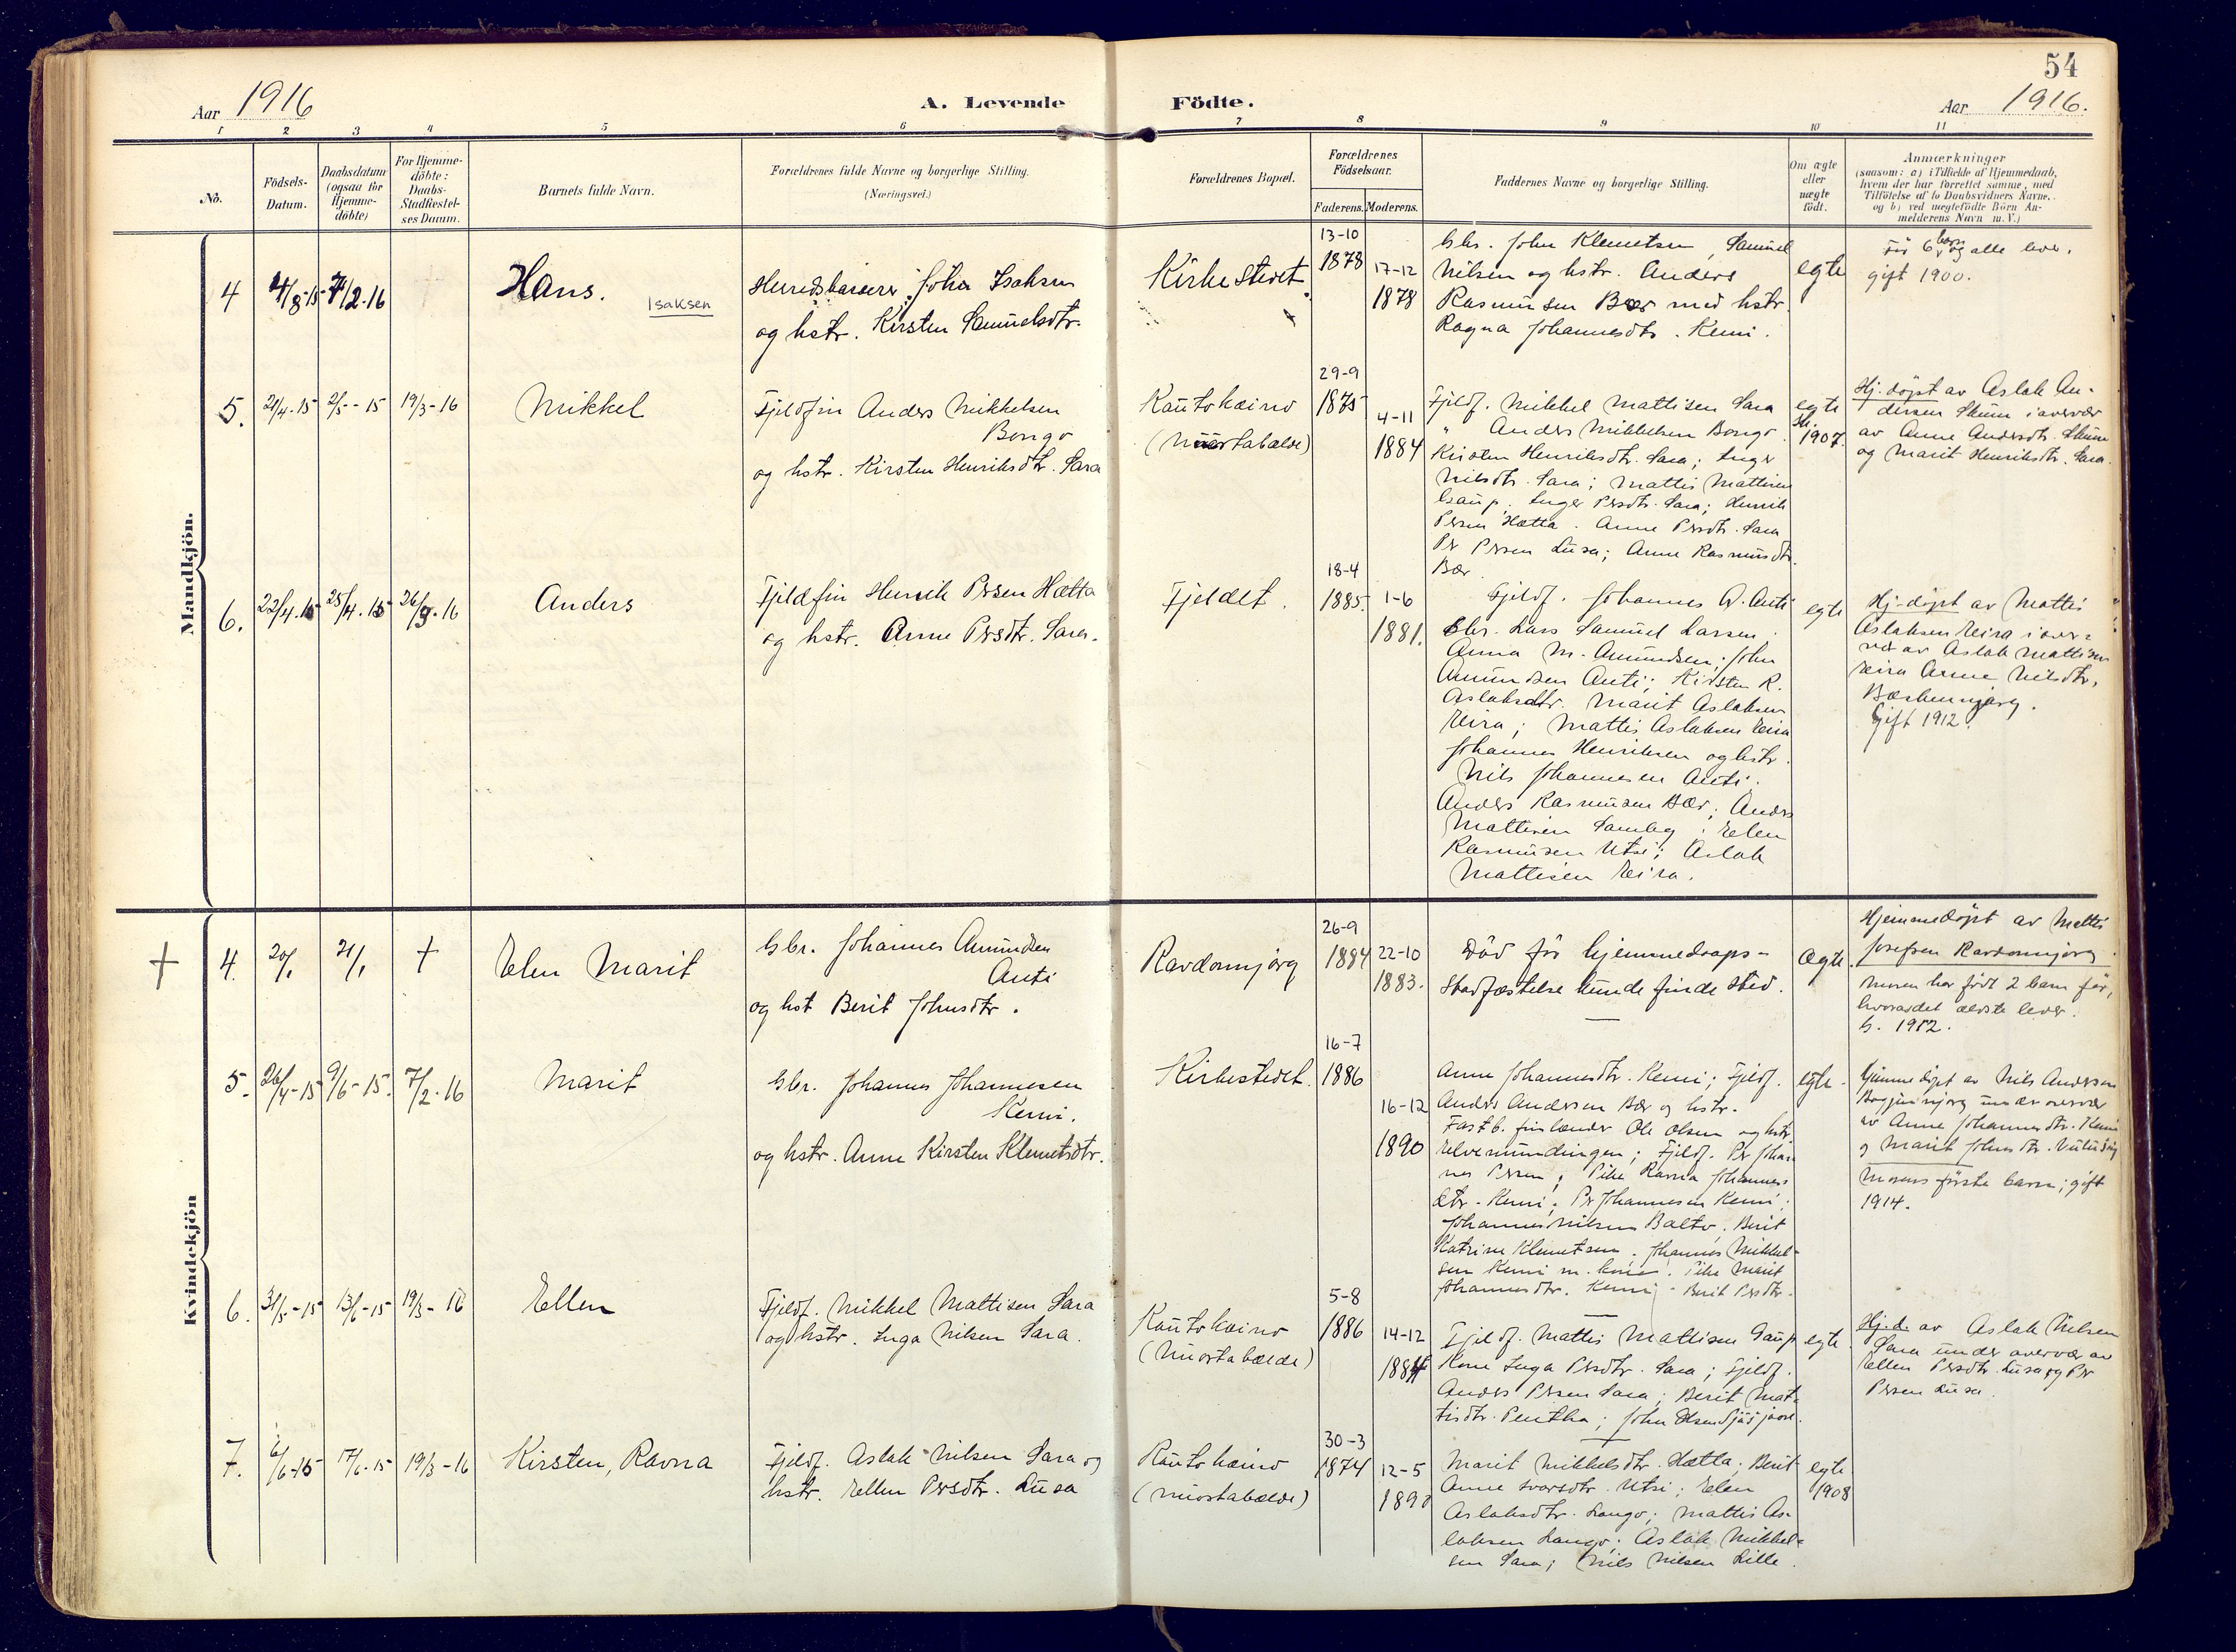 54
Aar 1916
A. Levende Födte.
Aar 1916.
1 2 3 4 5 6 7 8 9 10 11
No.
Födsels-
Datum.
Daabsdatum
(ogsaa for
Hjemme-
döbte)
For Hjemme-
döbte:
Daabs-
Stadfæstel-
ses Datum.
Barnets fulde Navn.
Forældrenes fulde Navne og borgerlige Stilling.
(Næringsvei.)
Forældrenes Bopæl.
Forældrenes
Födselsaar.
Faderens. Moderens.
Faddernes Navne og borgerlige Stilling.
Om ægte
eller
uægte
födt.
Anmærkninger
(saasom: a) i Tilfælde af Hjemmedaab,
hvem der har forrettet samme, med
Tilföielse af to Daabsvidners Navne,
og b) ved uegtefödte Börn An-
melderens Navn m. V.)
Mandkjön.
4
4/8-15
7/2-16
Hans.
Isaksen
Herredskasserer John Isaksen
og hstr. Kirsten Samuelsdtr.
Kirkestedet
13-10
1878
17-12
1878
Gbr. John Klemetsen, Samuel
Nilsen og hstr. Anders
Rasmussen Bær med hstr.
Ragna Johannesdtr. Kemi.
egte
før 6 barn og alle lever.
gift 1900.
5.
21/4-15
2/5-15
19/3-16
Mikkel
Fjeldfin Anders Mikkelsen
Bongo
og hstr. Kirsten Henriksdtr. Sara
Kautokeino
29-9
1875
4-11
1884
Fjeldf. Mikkel Mattisen Sara
" Anders Mikkelsen Bongo.
Kirsten Henriksdtr. Sara; Inger
Nilsdtr. Sara; Mattis Mattisen
Gaup. Inger Persdtr. Sara; Henrik
Persen Hætta. Anne Persdtr. Sara
Per Persen Lusa; Anne Rasmusdtr.
Bær
egte
1907.
Hj. døpt av Aslak An-
dersen Skum i overvær
av Anne Andersdtr. Skum
og Marit Henriksdtr. Sara.
6.
22/4-15
25/4-15
26/3-16
Anders
Fjeldfin Henrik Persen Hætta
og hstr. Anne Persdtr. Sara.
Fjeldet.
18-4
1885.
1-6
1881.
Fjeldf. Johannes A. Anti
Gbr. Lars Samuel Larsen.
Anna M. Amundsen; John
Amundsen Anti; Kirsten R.
Aslaksdtr. Marit Aslaksen
Eira; Mattis Aslaksen Eira
Johannes Henriksen og hstr.
Nils Johannesen Anti.
Anders Rasmusen Bær; Anders
Mattisen; Elen
Rasmusen Utsi; Aslak
Mattisen Eira.
egte
Hj-døpt av Mattis
Aslaksen Eira i over-
vær av Aslak Mattisen
Eira Anne Nilsdtr.
Gift 1912.
Kvindekjön
+
4.
20/1
21/1
+
Elen Marit
Gbr. Johannes Amundsen
Anti
og hst Berit Johnsdtr.
Ravdonnjarg
26-9
1884
22-10
1883.
Død før hjemmedaaps-
stadfæstelse kunde finde sted.
Ægte
Hjemmedøpt av Mattis
Josefsen Ravdonnjarg.
Moren har født 2 barn før,
hvorav det ældste lever.
g. 1912.
5.
26/4-15
9/6-15.
7/2-16
Marit
Gbr. Johannes Johannesen
Kemi.
og hstr. Anne Kirsten Klemetsdtr.
Kirkestedet.
16-7
1886
16-12
1890
Anne Johannesdtr. Kemi; Fjeldf.
Anders Andersen Bær og hstr.
Fastb. finlænder Ole Olsen og hstr.
Elvemundingen; Fjeldf. Per Johan
nes Persen; Pike Ravna Johannes
dtr. Kemi; Per Johannesen Kemi;
Johannes Nilsen Balto. Berit
Katrine Klemetsen. Johannes Mikkel-
sen Kemi m. kone. Pike Marit
Johannesdtr. Kemi. Berit Persdtr.
egte.
hjemmedøpt av Nils Andersen
under overvær
av Anne Johannesdtr. Kemi
og Marit Johnsdtr.
Morens første barn; gift
1914.
6.
31/5-15
13/6-15
19/3-16
Ellen
Fjeldf. Mikkel Mattisen Sara
og hstr. Inga Nilsen Sara.
Kautokeino
(Nuortabælde)
5-8
1886
14-12
1884
Fjeldf. Mattis Mattisen Gaup
Kone Inga Persdtr. Sara; Fjeldf.
Anders Persen Sara; Berit Mat-
tisdtr. Pentha; John Olsen
egte.
Hj.d. av Aslak Nilsen
Sara under overvær av
Ellen Persdtr. Lusa og Per
Persen Lusa.
7.
6/6-15
17/6-15
19/3-16
Kirsten, Ravna
Fjeldf. Aslak Nilsen Sara og
hstr. Ellen Persdtr. Lusa
Kautokeino
(Nuortabælde)
30-3
1874
12-5
1890
Marit Mikkelsdtr. Hætta; Berit
Anne Ivarsdtr. Utsi; Elen
Aslaksdtr. Lango; Mattis As-
laksen Lango; Aslak Mikkel-
sen Sara; Nils Nilsen Lille.
egte.
1908